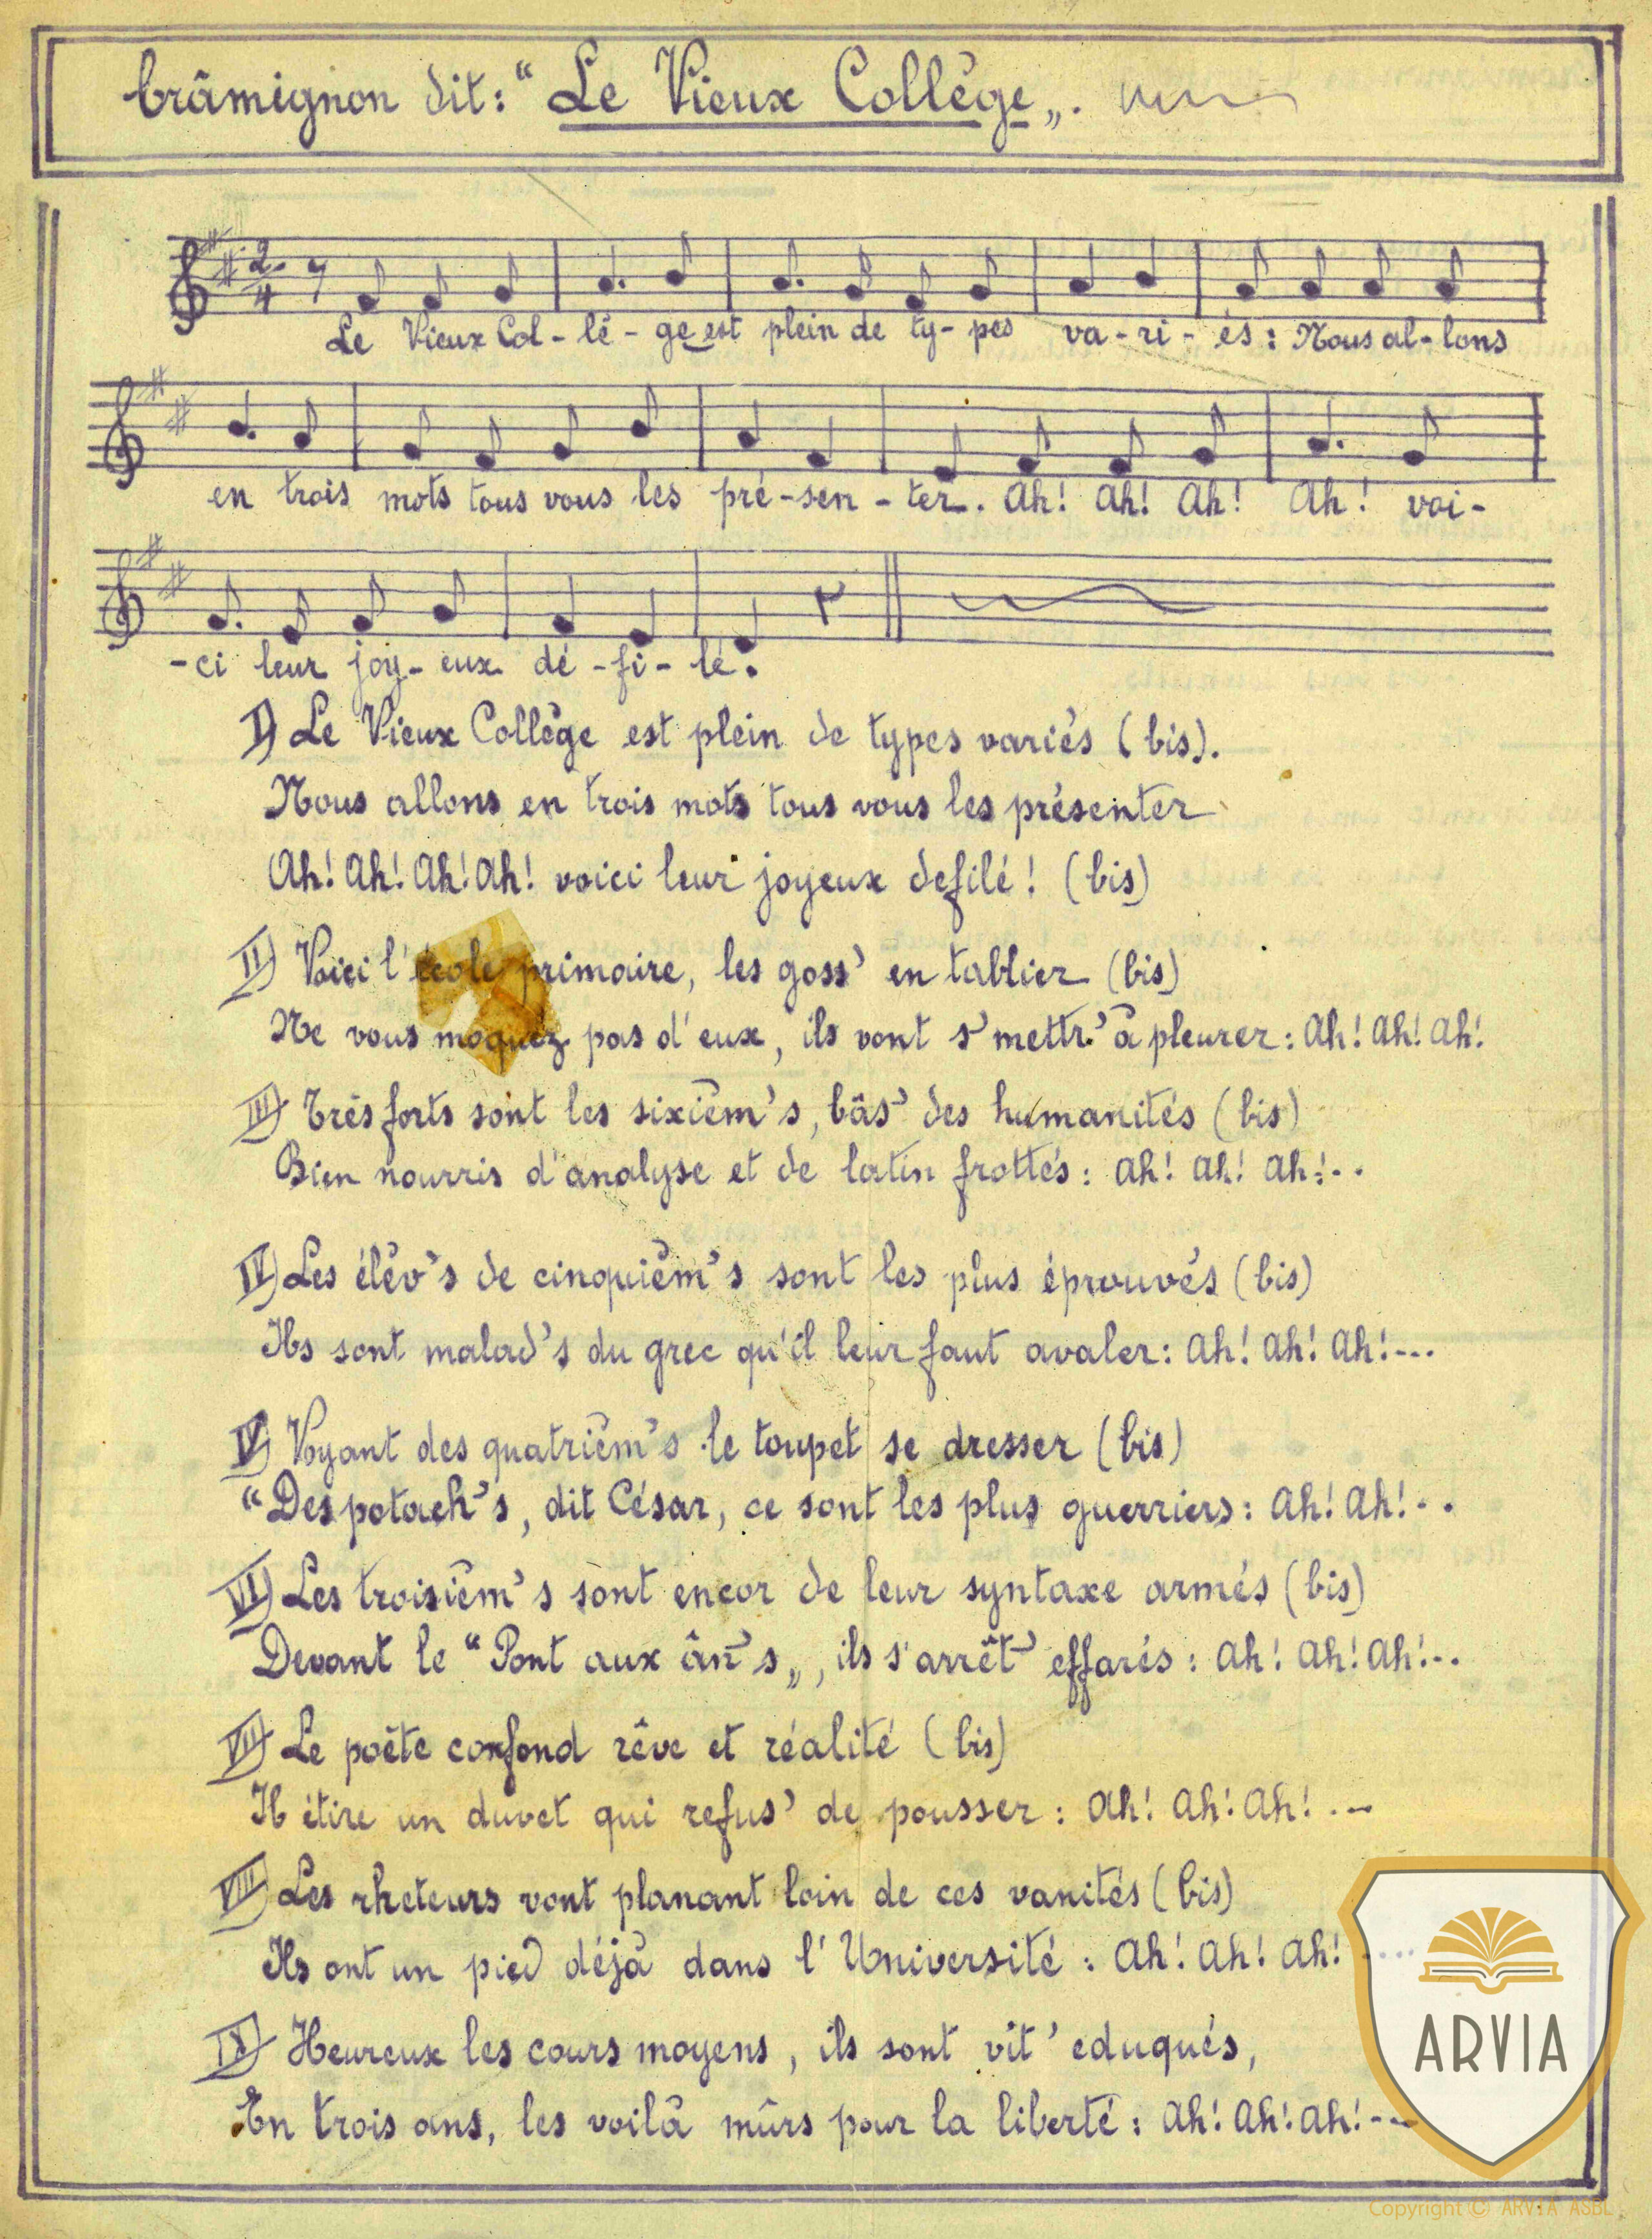 Crâmignon dit: “Le Vieux Collège„.
2/4
Le Vieux Col-lè-ge est plein de ty-pes va-ri-és: Nous al-lons
en trois mots tous vous les pré-sen-ter. Ah! Ah! Ah! Ah! voi-
-ci leur joy-eux dé-fi-lé.
I) Le Vieux Collège est plein de types variés (bis).
Nous allons en trois mots tous vous les présenter
Ah! Ah! Ah! Ah! voici leur joyeux defilé! (bis)
II) Voici l'école primaire, les goss' en tablier (bis)
Ne vous moquez pas d'eux, ils vont s'mettr' à pleurer: Ah! Ah! Ah!
III) Très forts sont les sixièm's, bâs' des humanités (bis)
Bien nourris d'analyse et de latin frottés: Ah! Ah! Ah!..
IV) Les élèv's de cinquièm's sont les plus éprouvés (bis)
Ils sont malad's du grec qu'il leur faut avaler: Ah! Ah! Ah!...
V) Voyant des quatrièm's le toupet se dresser (bis)
“Des potach's, dit César, ce sont les plus guerriers: Ah! Ah!..
VI) Les troisièm's sont encor de leur syntaxe armés (bis)
Devant le “Pont aux ân's„, ils s'arrêt' effarés: Ah! Ah! Ah!..
VII) Le poète confond rêve et réalité (bis)
Il étire un duvet qui refus' de pousser: Ah! Ah! Ah!..
VIII) Les rheteurs vont planant loin de ces vanités (bis)
Ils ont un pied déjà dans l'Université: Ah! Ah! Ah! ....
IX) Heureux les cours moyens, ils sont vit' eduqués,
En trois ans, les voilà mûrs pour la liberté: Ah! Ah! Ah!..
ARVIA
Copyright © ARVIA ASBL